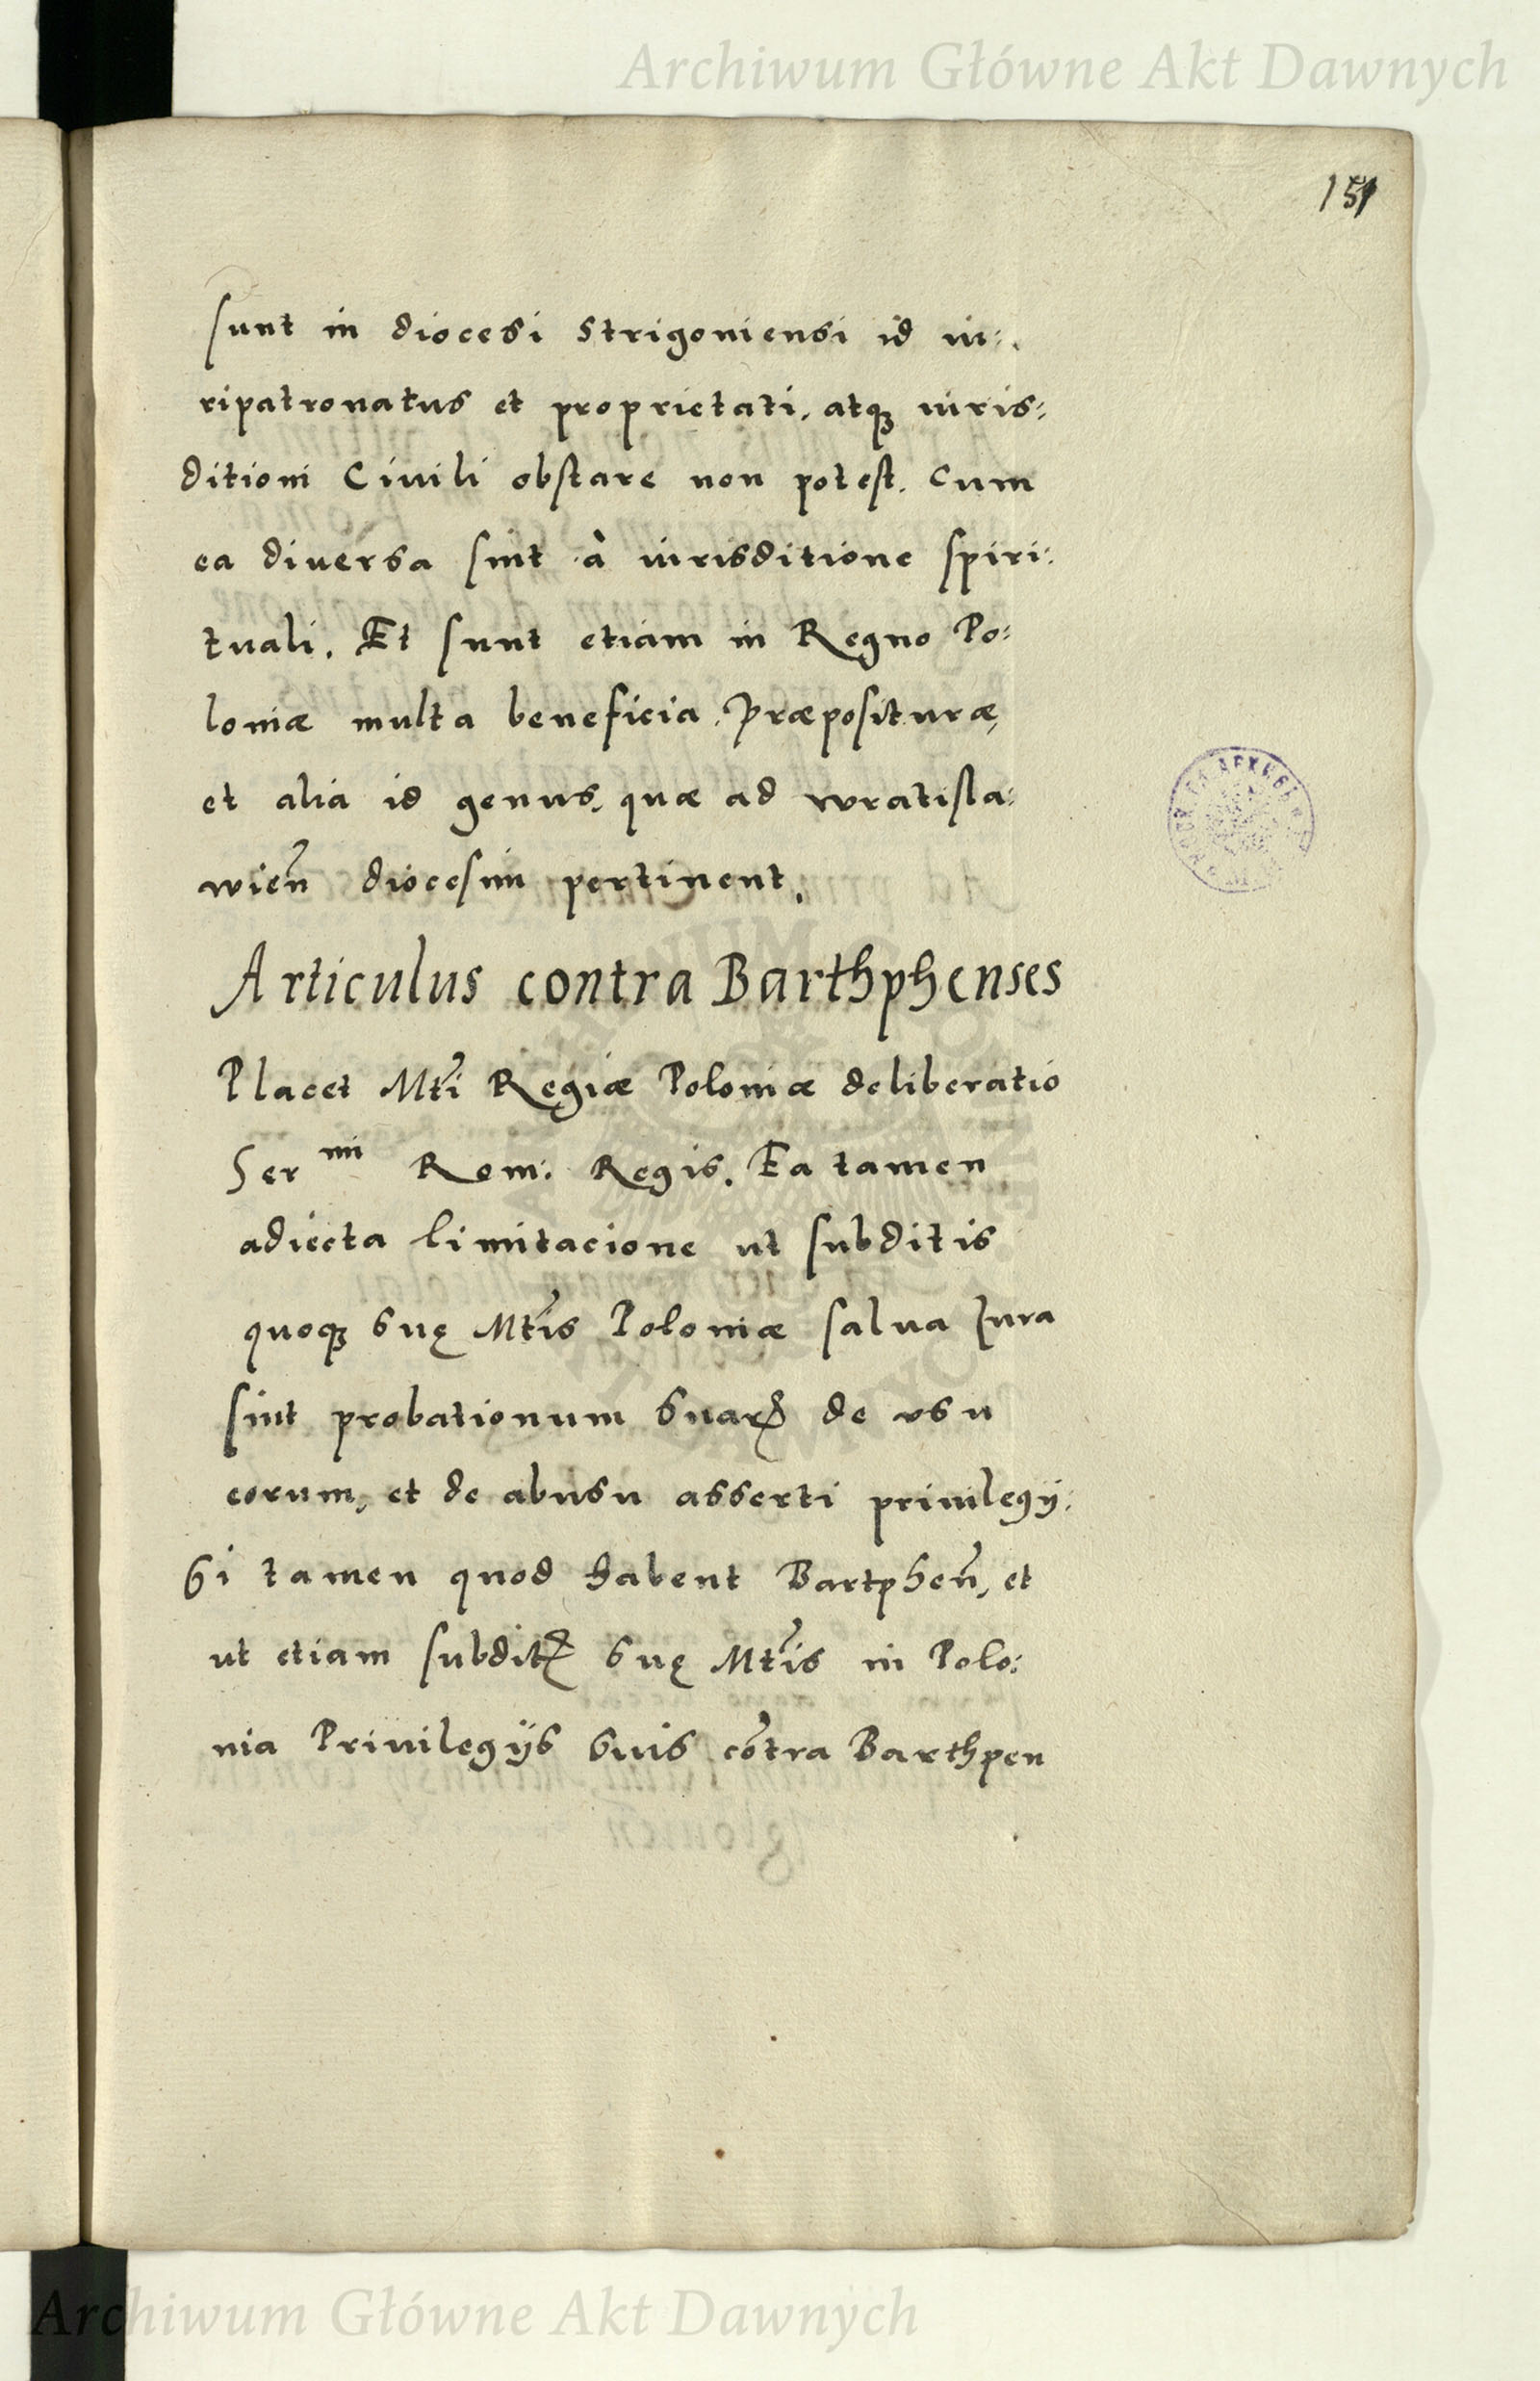 Archiwum Główne Akt Dawnych
151
sunt in diocesi Strigoniensi id iu:
ripatronatus et proprietati, atqꝫ iuris:
ditioni Civili obstare non potest. Cum
ea diuersa sint à iurisditione spiri:
tuali. Et sunt etiam in Regno Po:
loniæ multa beneficia, Præposituræ,
et alia id genus, quæ ad wratisla:
wien̄ diocesim pertinent.
Articulus contra Barthphenses
Placet Mtĩ Regiæ Poloniæ deliberatio
Ser ᵐⁱ Rom: Regis. Ea tamen
adiecta limitacione ut subditis
quoqꝫ suę Mtĩs Poloniæ salua Jura
sint probationum suarꝝ de vsu
eorum, et de abusu asserti priuilegij:
Si tamen quod habent Bartphen̄, et
ut etiam subditꝝ suę Mtĩs in Polo:
nia Priuilegijs suis cõtra Barthpen
Archiwum Główne Akt Dawnych